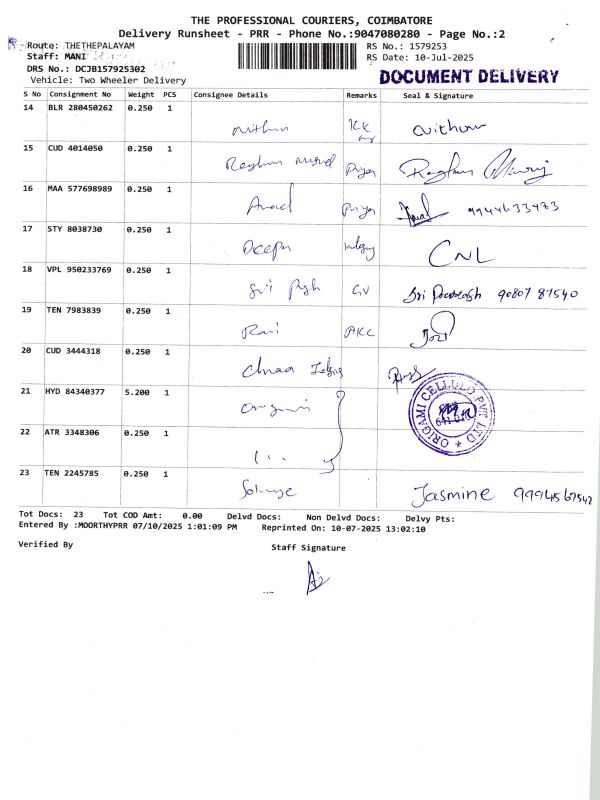 THE PROFESSIONAL COURIERS, COIMBATORE
Delivery Runsheet - PRR - Phone No.:9047080280 - Page No.:2
Route: THETHEPALAYAM
RS No.: 1579253
Staff: MANI
RS Date: 10-Jul-2025
DRS No.: DCJB157925302
DOCUMENT DELIVERY
Vehicle: Two Wheeler Delivery
S No Consignment No Weight PCS Consignee Details Remarks Seal & Signature
14 BLR 280450262 0.250 1
Nithun KK Nithun
15 CUD 4014050 0.250 1
Priya
16 MAA 577698989 0.250 1
Anand Priya 9944633473
17 STY 8038730 0.250 1
Deepa CNL
18 VPL 950233769 0.250 1
Sri GV Sri Prakash 90807 87540
19 TEN 7983839 0.250 1
Ravi AKC
20 CUD 3444318 0.250 1
21 HYD 84340377 5.200 1
ORIGAMI CELLULO PVT LTD
22 ATR 3348306 0.250 1
23 TEN 2245785 0.250 1
Jasmine
Tot Docs: 23 Tot COD Amt: 0.00 Delvd Docs: Non Delvd Docs: Delvy Pts:
Entered By :MOORTHYPRR 07/10/2025 1:01:09 PM Reprinted On: 10-07-2025 13:02:10
Verified By
Staff Signature